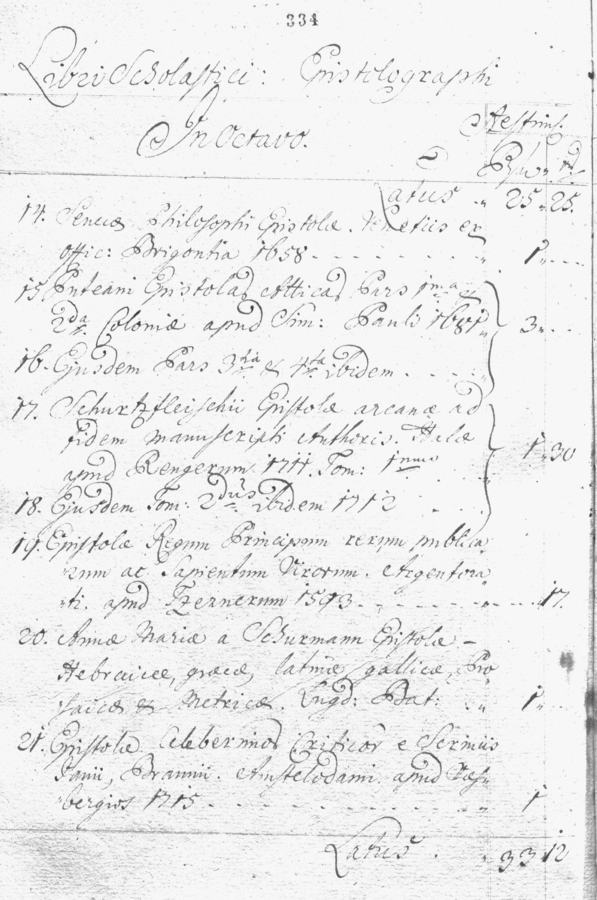 334
Libri Scholastici: Epistolographi
In Octavo.
Æstim:
Latus " 25 " 25.
14. Senecæ Philosophi Epistolæ. Venetiis ex
offic: Brigontia 1658 - - - - - - 1 " - -
15. Puteani Epistolas Atticas Pars 1ma &
2da Coloniæ apud Sim: Pauli 1681 3 " - -
16. Ejusdem Pars 3tia & 4ta ibidem . - .
17. Schurtzfleischii Epistolæ arcanæ ad
fidem manuscripti Authoris. Halæ
apud Rengerum 1711. Tom: 1mus 1 " 30
18. Ejusdem Tom: 2dus ibidem 1712
19. Epistolæ Regum Principum rerum publica
rum ac Sapientum Virorum. Argentora
ti. apud Zeznerum 1593 - - - - - " - - 17.
20. Annæ Mariæ a Schurmann Epistolæ -
Hebraicæ, græcæ, latinæ gallicæ, Pro
saicæ & Metricæ. Lugd: Bat: . " 1 " -
21. Epistolæ Celeberrimor Criticor e Scriniis
Janii, Braunii. Amstelodami. apud
bergios 1715 - . . . . . . . . . 1
Latus . " 33 12